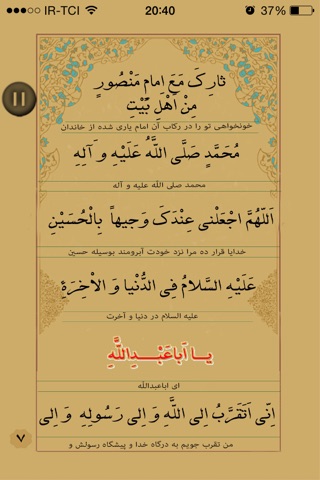 IR-TCI 20:40 37%
ثارِکَ مَعَ امامٍ مَنْصُورٍ
مِنْ اَهْلِ بَیْتِ
خونخواهی تو را در رکاب آن امام یاری شده از خاندان
مُحَمَّدٍ صَلَّی اللَّهُ عَلَیْهِ وَ آلِهِ
محمد صلی الله علیه و آله
اَللّهُمَّ اجْعَلْنی عِنْدَکَ وَجیهاً بِالْحُسَیْنِ
خدایا قرار ده مرا نزد خودت آبرومند بوسیله حسین
عَلَیْهِ السَّلامُ فِی الدُّنْیا وَ الْاخِرَةِ
علیه السلام در دنیا و آخرت
یـا اَباعَبْـدِاللَّهِ
ای اباعبدالله
اِنّی اَتَقَرَّبُ اِلی اللَّهِ وَ اِلی رَسُولِهِ وَ اِلی
من تقرب جویم به درگاه خدا و پیشگاه رسولش و
۷